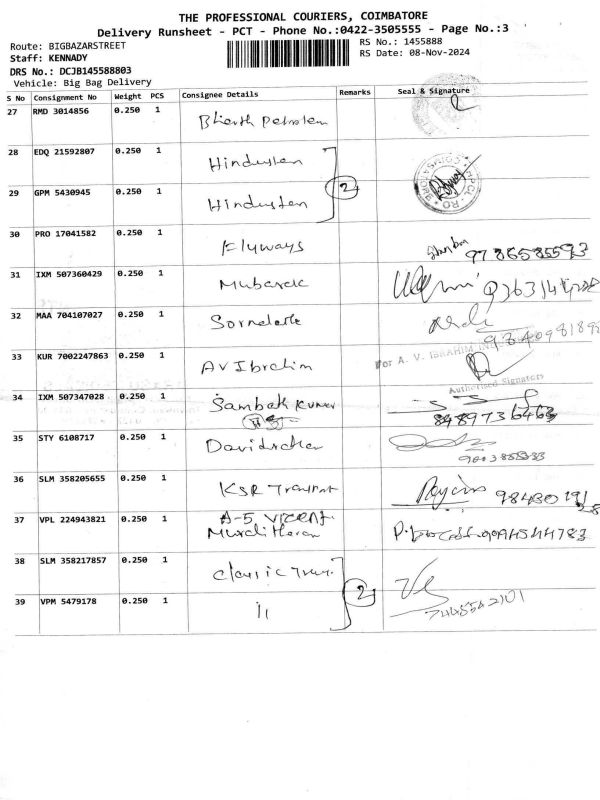 THE PROFESSIONAL COURIERS, COIMBATORE
Delivery Runsheet - PCT - Phone No.:0422-3505555 - Page No.:3
Route: BIGBAZARSTREET
RS No.: 1455888
Staff: KENNADY
RS Date: 08-Nov-2024
DRS No.: DCJB145588803
Vehicle: Big Bag Delivery
S No Consignment No Weight PCS Consignee Details Remarks Seal & Signature
27 RMD 3014856 0.250 1 Bharth Petrolem
28 EDQ 21592807 0.250 1 Hindusten
2
29 GPM 5430945 0.250 1 Hindusten
30 PRO 17041582 0.250 1 Flyways
31 IXM 507360429 0.250 1 Mubarak
32 MAA 704107027 0.250 1
33 KUR 7002247863 0.250 1 AV Ibrahim For A. V. IBRAHIM
Authorised Signatory
34 IXM 507347028 0.250 1 Kumar
8489736463
35 STY 6108717 0.250 1
36 SLM 358205655 0.250 1 KSR Transport
37 VPL 224943821 0.250 1 A-5 Vicent
Murali tharan
38 SLM 358217857 0.250 1 Classic Tran.
2
39 VPM 5479178 0.250 1 11
7445542101